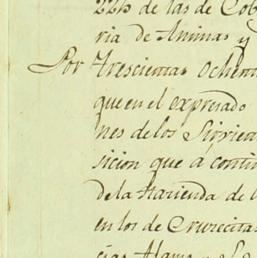 224 de las de Cob
ria de Animas y
Por Trescientas Ochent
que en el expresado
nes de los Sirvien
sicion que á conti
de la Hazienda de
en los de Cruzecita
cias Alamo y el